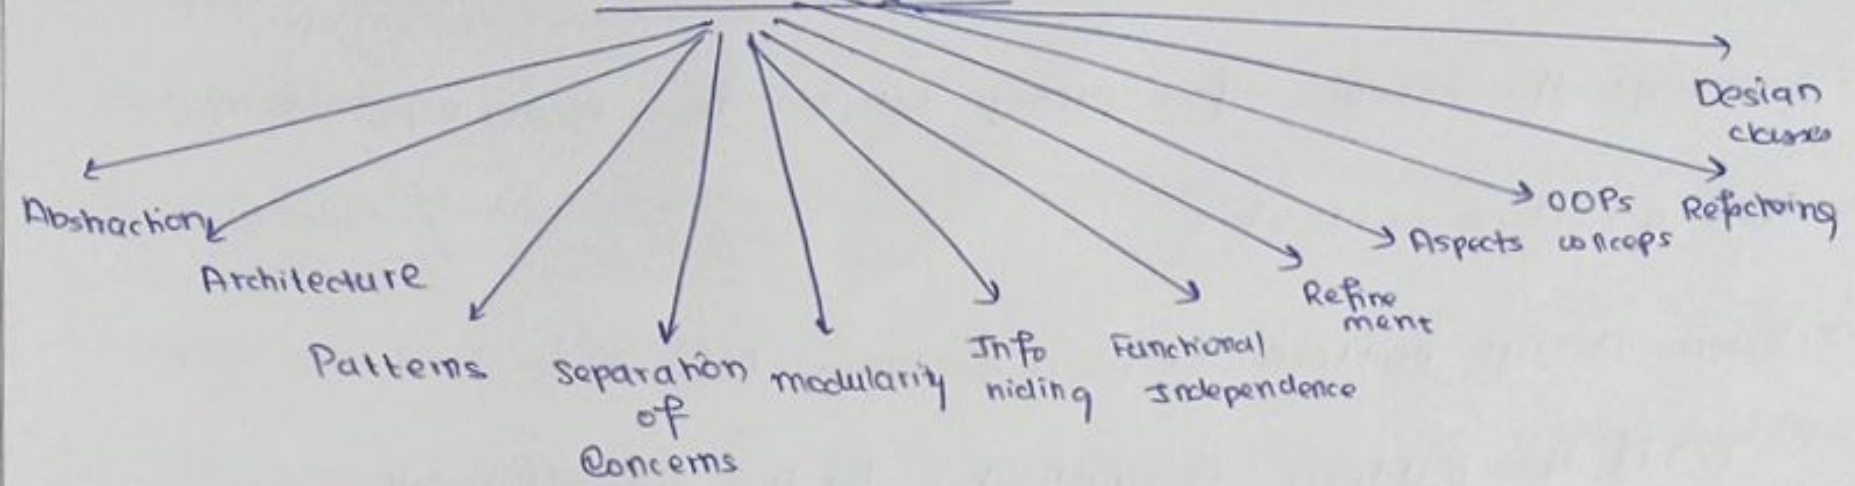 Abstraction
Architecture
Patterns
Separation
of
Concerns
modularity
Info
hiding
Functional
Independence
Refine
ment
Aspects
OOPs
conceps
Refactoring
Design
classes